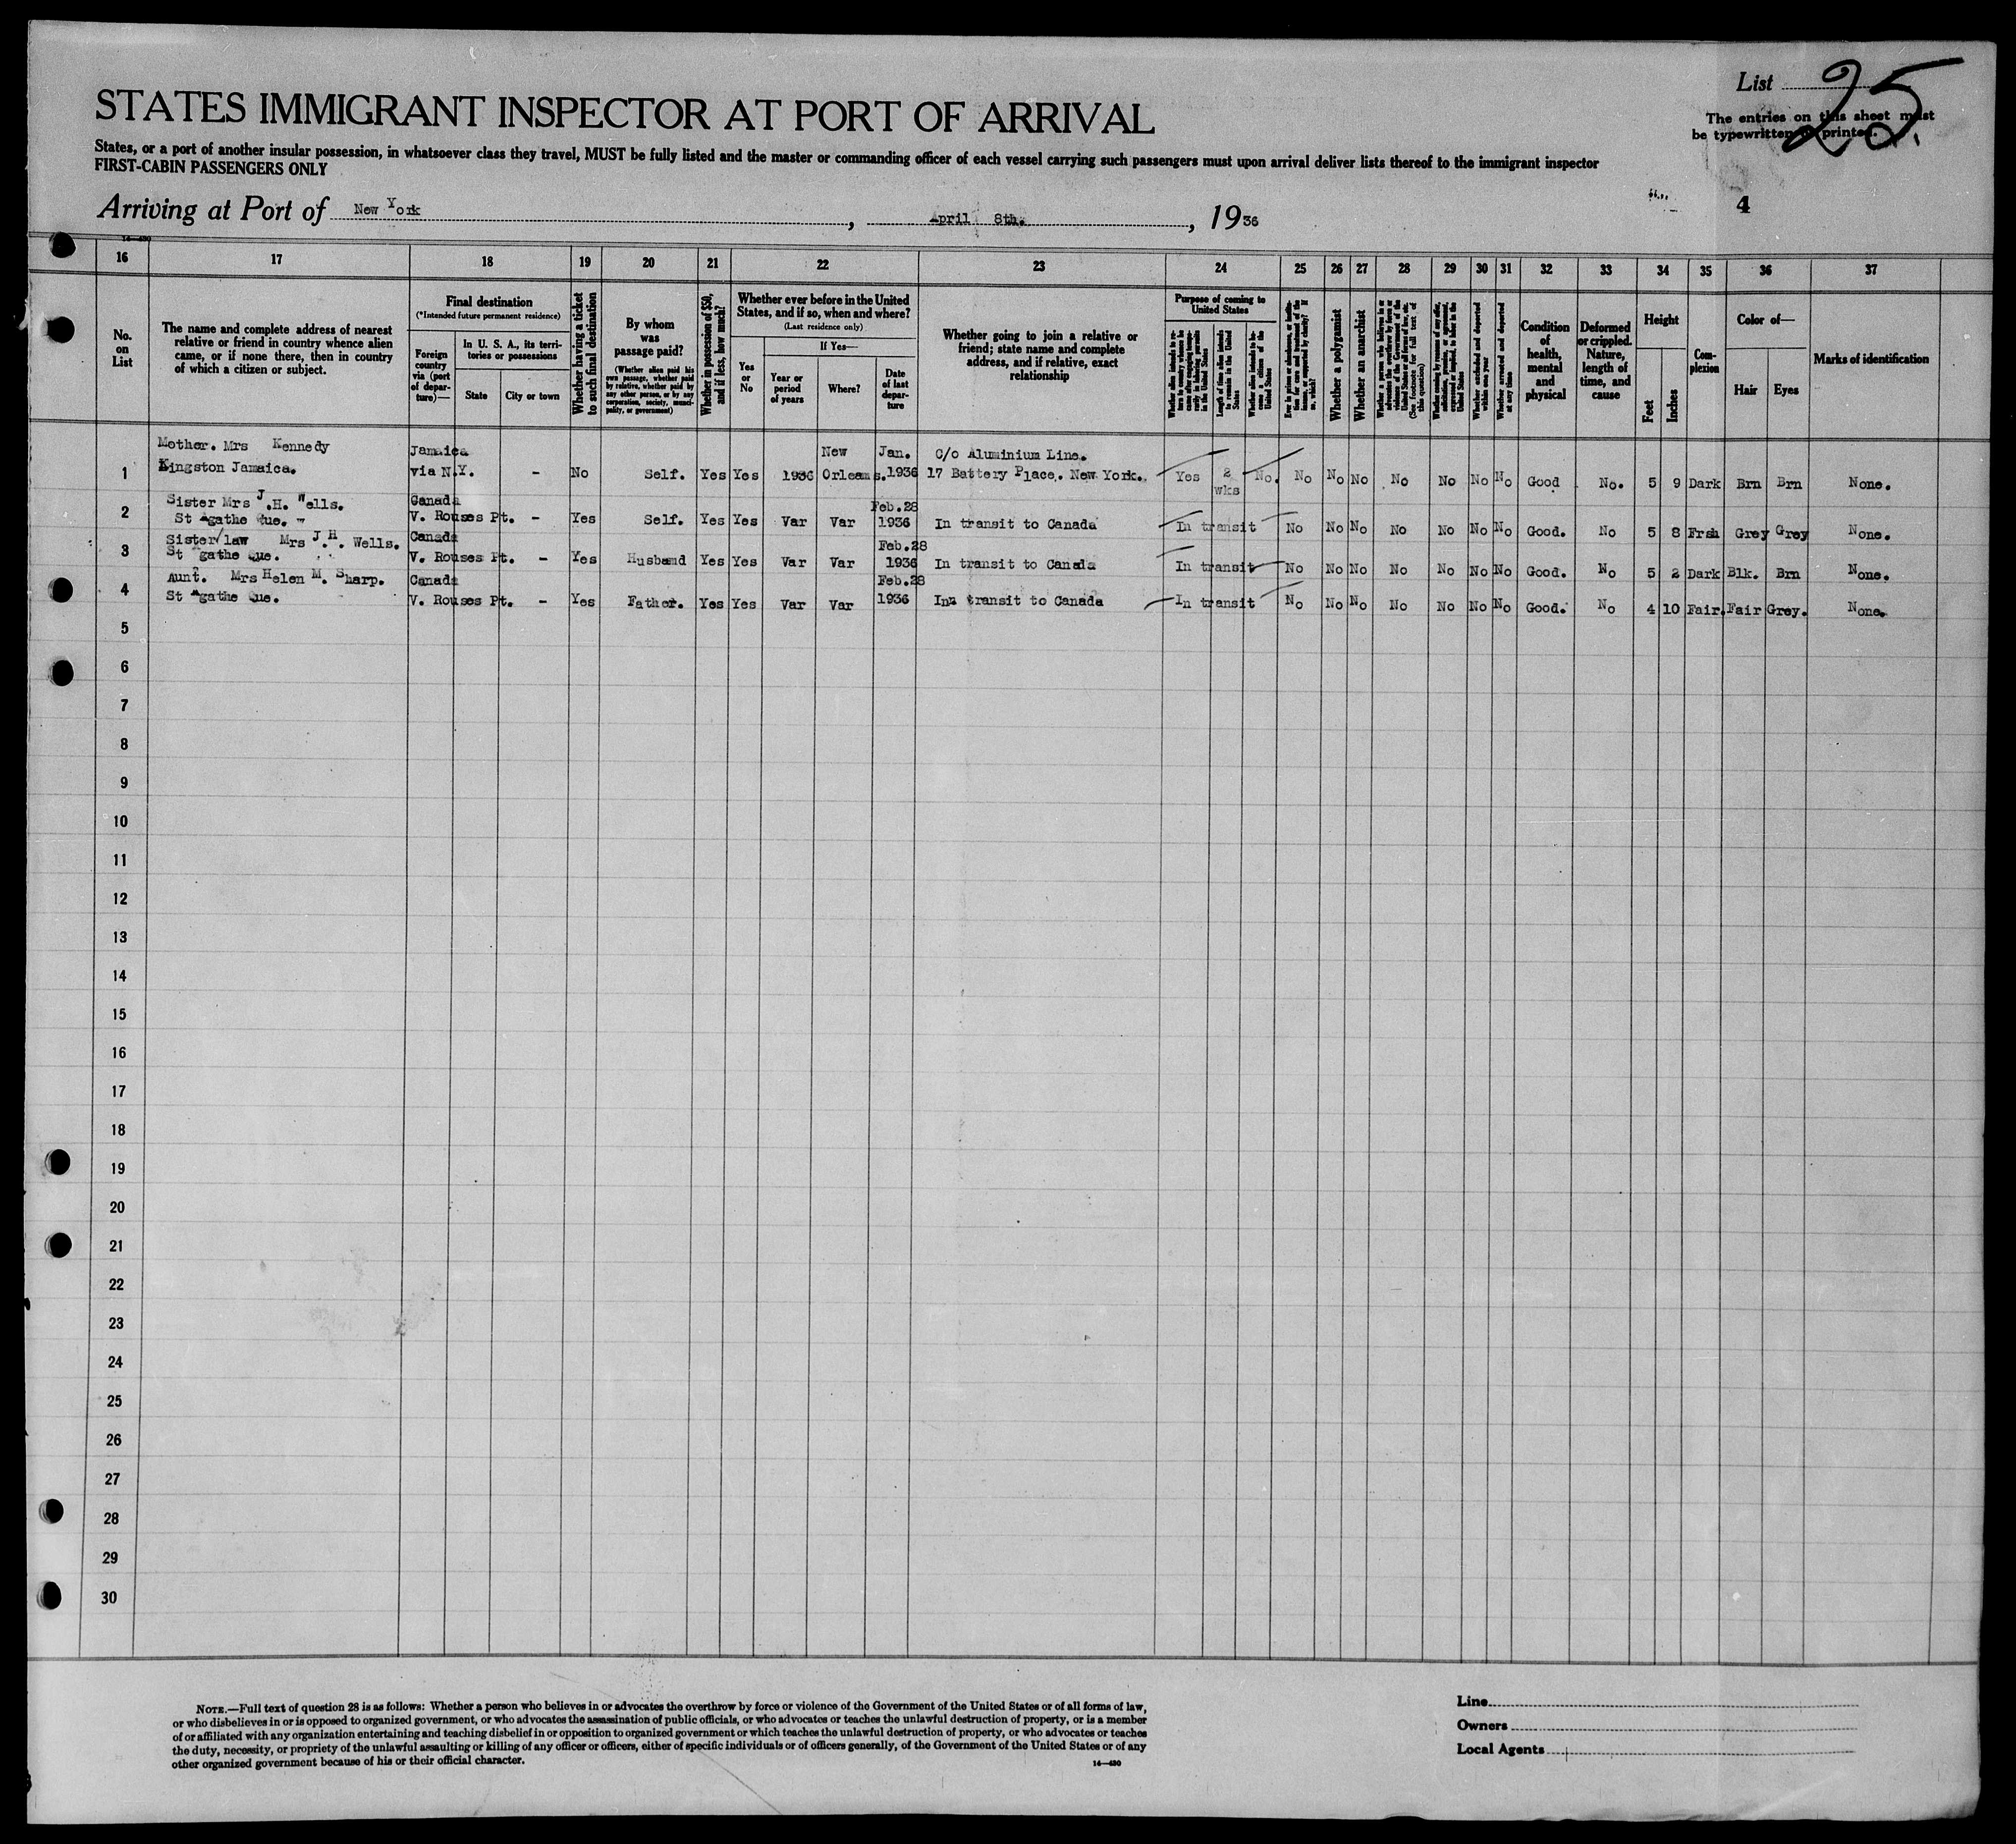 List 25.
STATES IMMIGRANT INSPECTOR AT PORT OF ARRIVAL
The entries on this sheet must
be typewritten or printed.
States, or a port of another insular possession, in whatsoever class they travel, MUST be fully listed and the master or commanding officer of each vessel carrying such passengers must upon arrival deliver lists thereof to the immigrant inspector
FIRST-CABIN PASSENGERS ONLY
Arriving at Port of New York, April 8th., 1936
4
16 17 18 19 20 21 22 23 24 25 26 27 28 29 30 31 32 33 34 35 36 37
No. on List
The name and complete address of nearest
relative or friend in country whence alien
came, or if none there, then in country
of which a citizen or subject.
Final destination
(*Intended future permanent residence)
Foreign country via (port of departure)—
In U. S. A., its territories or possessions
State
City or town
Whether having a ticket to such final destination
By whom was passage paid?
(Whether alien paid his own passage, whether paid by relative, whether paid by any other person, or by any corporation, society, municipality, or government)
Whether in possession of $50, and if less, how much?
Whether ever before in the United
States, and if so, when and where?
(Last residence only)
Yes or No
If Yes—
Year or period of years
Where?
Date of last departure
Whether going to join a relative or
friend; state name and complete
address, and if relative, exact
relationship
Purpose of coming to United States
Length of time alien intends to remain in the United States
Whether alien intends to become a citizen of the United States
Whether a polygamist
Whether an anarchist
(See footnote for full text of this question)
Whether excluded and deported within one year
Whether arrested and deported at any time
Condition of health, mental and physical
Deformed or crippled. Nature, length of time, and cause
Height
Feet
Inches
Complexion
Color of—
Hair
Eyes
Marks of identification
Mother. Mrs Kennedy Jamaica New Jan. C/o Aluminium Line.
1 Kingston Jamaica. via N.Y. - No Self. Yes Yes 1936 Orleans. 1936 17 Battery Place. New York. Yes 2 wks No. No No No No No No No Good No. 5 9 Dark Brn Brn None.
Sister Mrs J.H. Wells. Canada Feb.28
2 St Agathe Que. V. Rouses Pt. - Yes Self. Yes Yes Var Var 1936 In transit to Canada In transit No No No No No No No Good. No 5 8 Frsh Grey Grey None.
Sister/law Mrs J.H. Wells. Canada Feb.28
3 St Agathe Que. V. Rouses Pt. - Yes Husband Yes Yes Var Var 1936 In transit to Canada In transit No No No No No No No Good. No 5 2 Dark Blk. Brn None.
Aunt. Mrs Helen M. Sharp. Canada Feb.28
4 St Agathe Que. V. Rouses Pt. - Yes Father. Yes Yes Var Var 1936 In transit to Canada In transit No No No No No No No Good. No 4 10 Fair. Fair Grey. None.
5
6
7
8
9
10
11
12
13
14
15
16
17
18
19
20
21
22
23
24
25
26
27
28
29
30
NOTE.—Full text of question 28 is as follows: Whether a person who believes in or advocates the overthrow by force or violence of the Government of the United States or of all forms of law,
or who disbelieves in or is opposed to organized government, or who advocates the assassination of public officials, or who advocates or teaches the unlawful destruction of property, or is a member
of or affiliated with any organization entertaining and teaching disbelief in or opposition to organized government or which teaches the unlawful destruction of property, or who advocates or teaches
the duty, necessity, or propriety of the unlawful assaulting or killing of any officer or officers, either of specific individuals or of officers generally, of the Government of the United States or of any
other organized government because of his or their official character.
14—430
Line
Owners
Local Agents